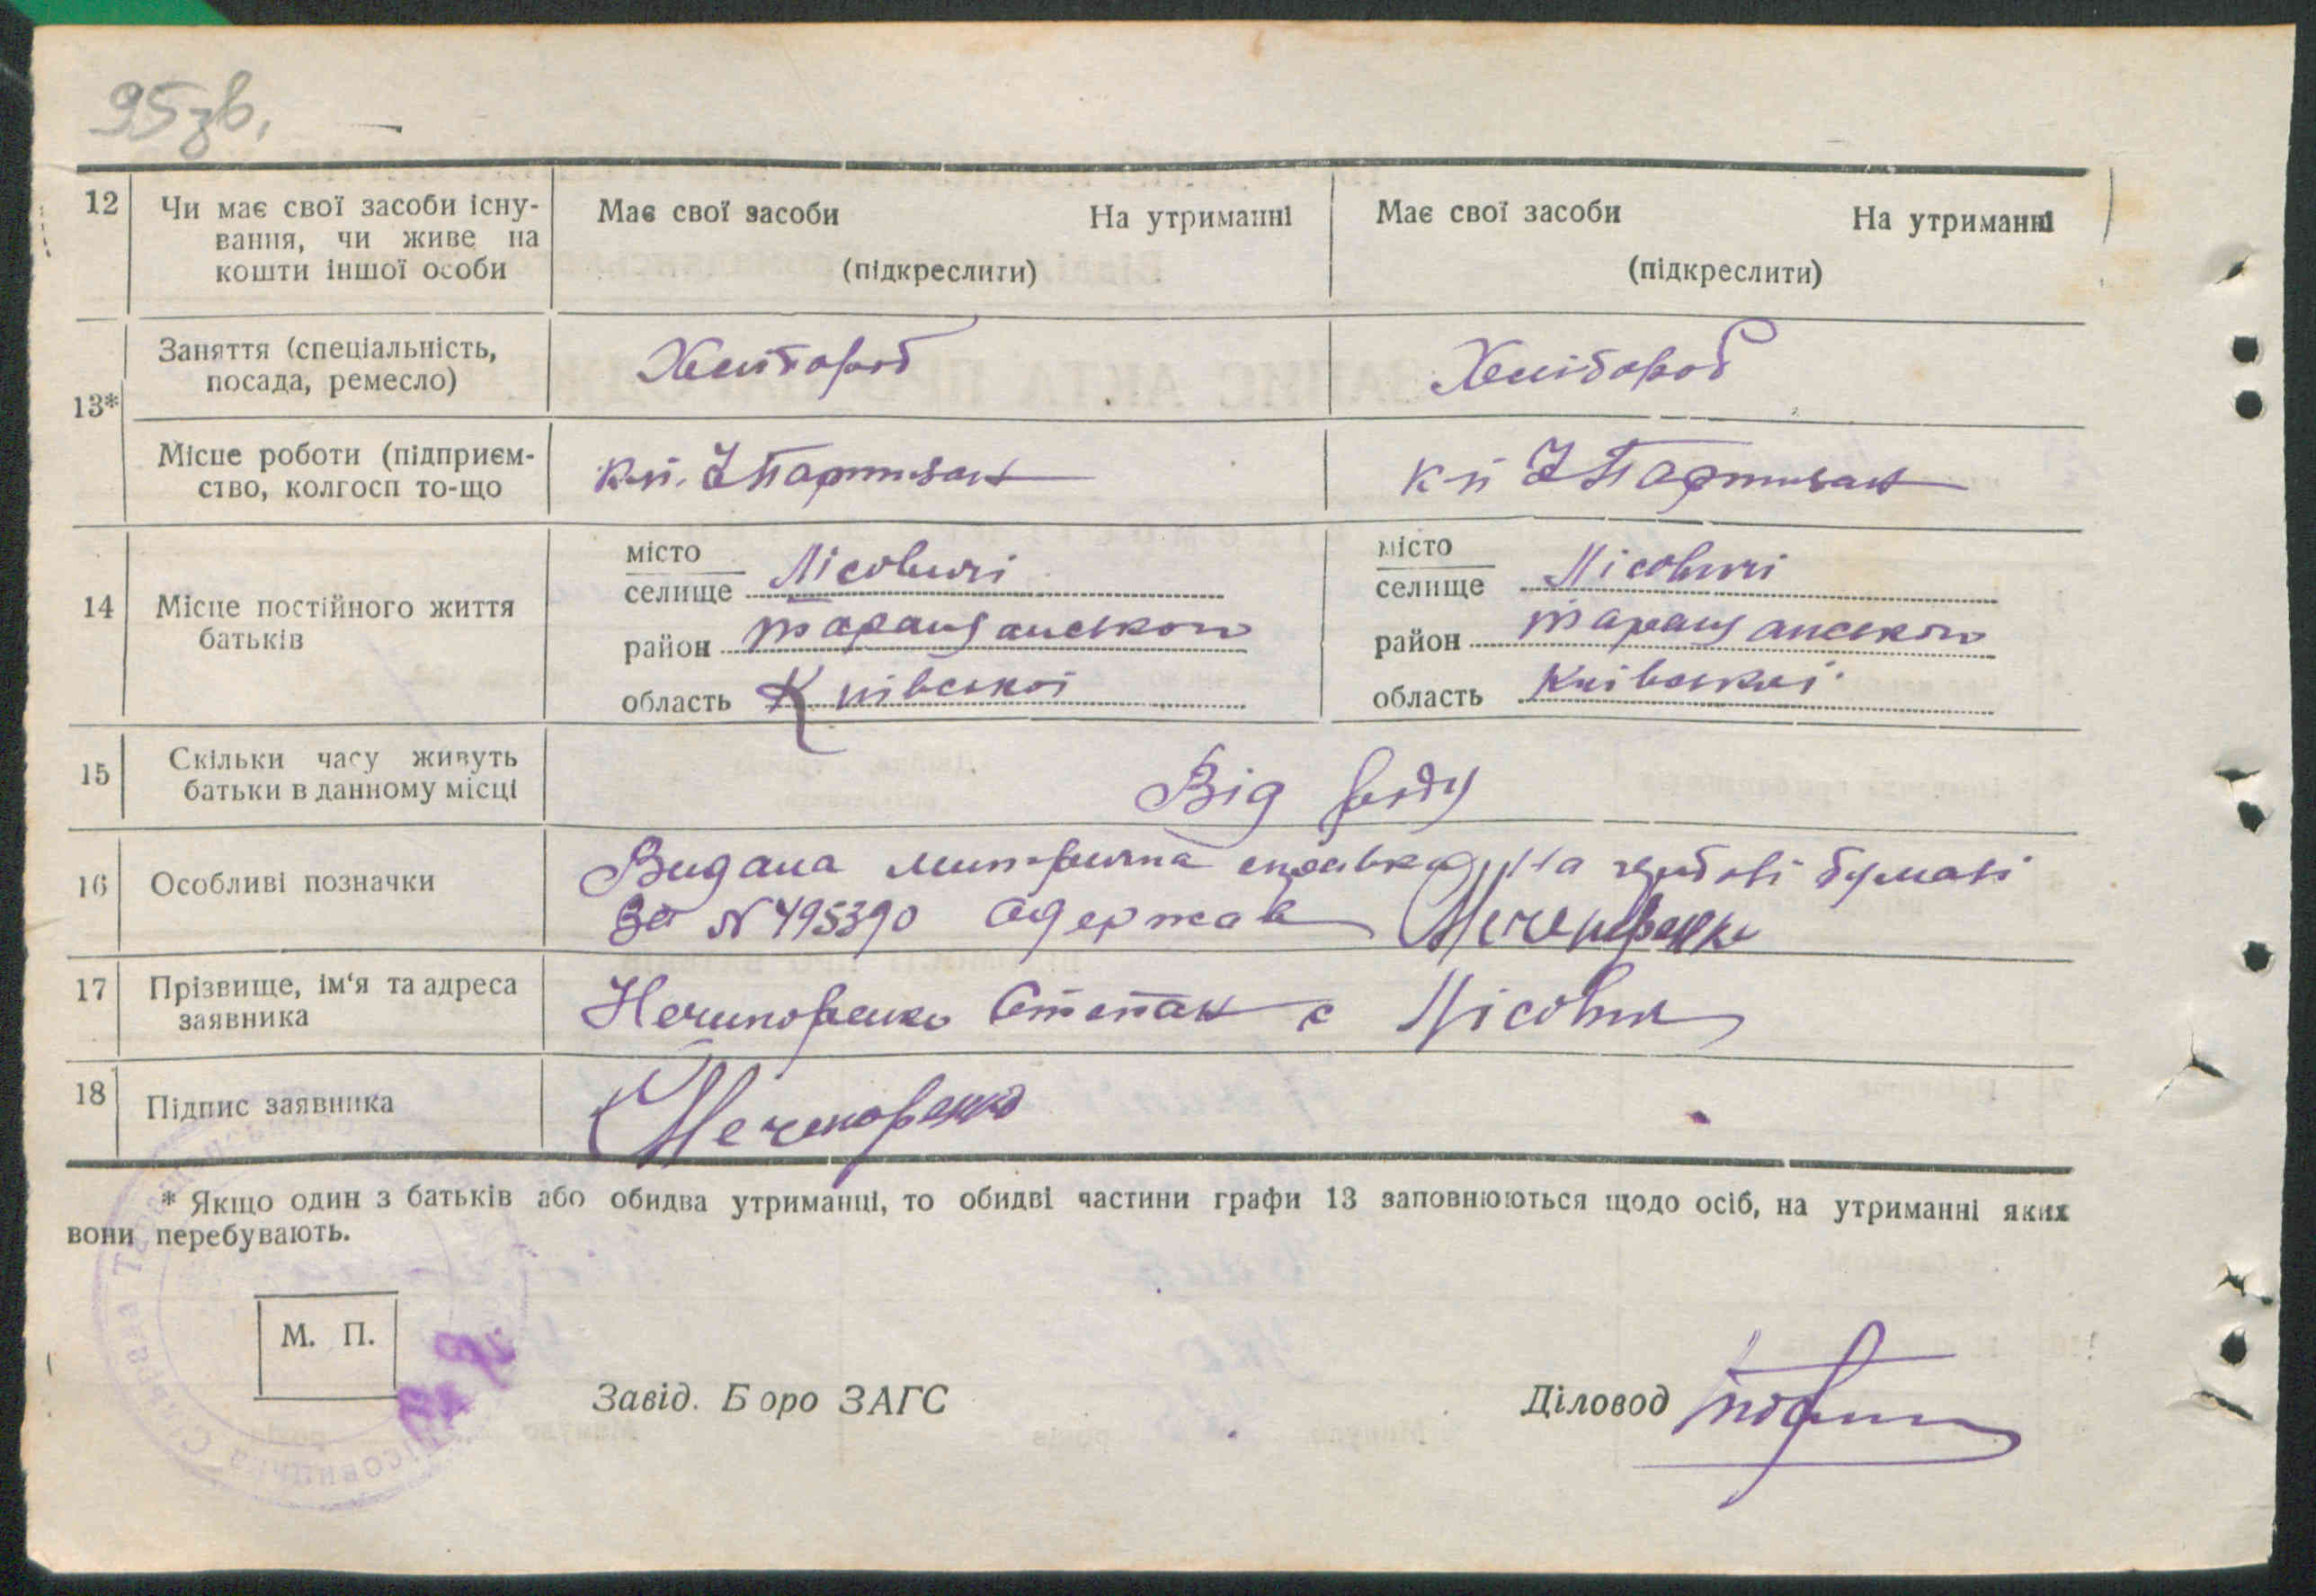 95зв.
12 Чи має свої засоби існу- Має свої засоби На утриманні Має свої засоби На утриманні
вання, чи живе на
кошти іншої особи (підкреслити) (підкреслити)
13* Заняття (спеціальність, Хлібороб Хлібороб
посада, ремесло)
Місце роботи (підприєм- к-п. І Партизан к-п І Партизан
ство, колгосп то-що
14 Місце постійного життя батьків
місто селище Лісовичі місто селище Лісовичі
район таращанського район таращанського
область Київської область Київської
15 Скільки часу живуть Від роду
батьки в данному місці
16 Особливі позначки Видана метрична справка на гербові бумаві
За N 495390 Одержав Нечепоренко
17 Прізвище, ім'я та адреса Нечипоренко Степан с Лісовичі
заявника
18 Підпис заявника Нечепоренко
* Якщо один з батьків або обидва утриманці, то обидві частини графи 13 заповнюються щодо осіб, на утриманні яких
вони перебувають.
М. П.
Завід. Б оро ЗАГС Діловод